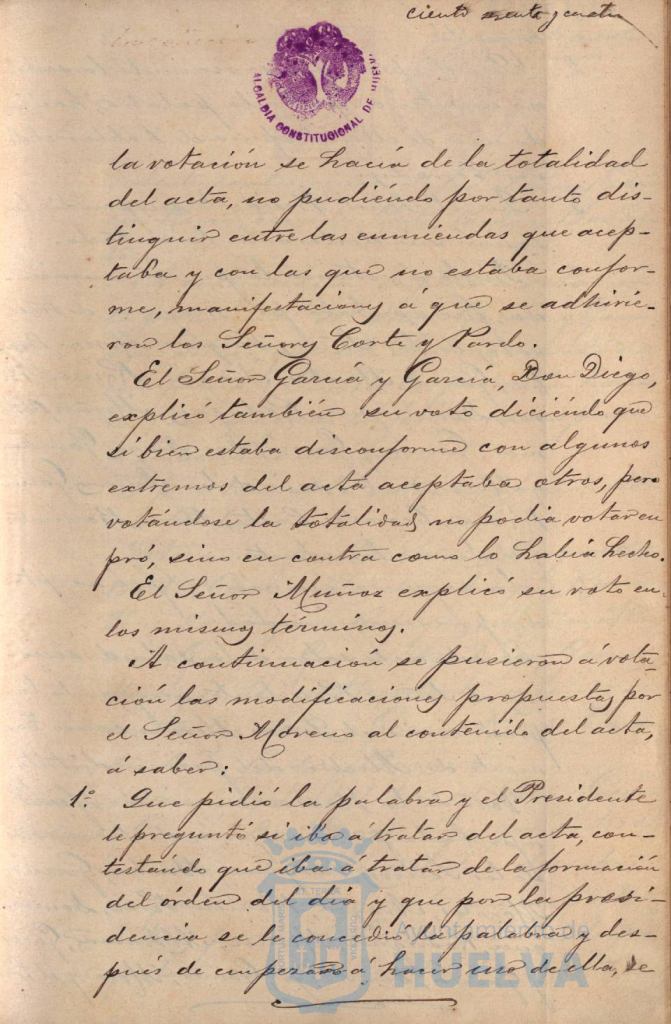 ciento
ALCALDIA CONSTITUCIONAL DE HUELVA
la votación se hacía de la totalidad
del acta, no pudiéndo por tanto dis-
tinguir entre las enmiendas que acep-
taba y con las que no estaba confor-
me, manifestaciones á que se adhirie-
ron los Señores Corte y Pardo.
El Señor García y García, Don Diego,
explicó también su voto diciéndo que
si bien estaba disconforme con algunos
extremos del acta aceptaba otros, pero
votándose la totalidad, no podia votar en
pró, sino en contra como lo había hecho.
El Señor Muñoz explicó su voto en
los mismos términos.
A continuación se pusieron á vota-
ción las modificaciones propuestas por
el Señor Moreno al contenido del acta,
á saber:
1º. Que pidió la palabra y el Presidente
le preguntó si iba á tratar del acta, con-
testándo que iba á tratar de la formación
del órden del día y que por la presi-
dencia se le concedió la palabra y des-
pués de empezar á hacer uso de ella, se
Ayuntamiento de
HUELVA